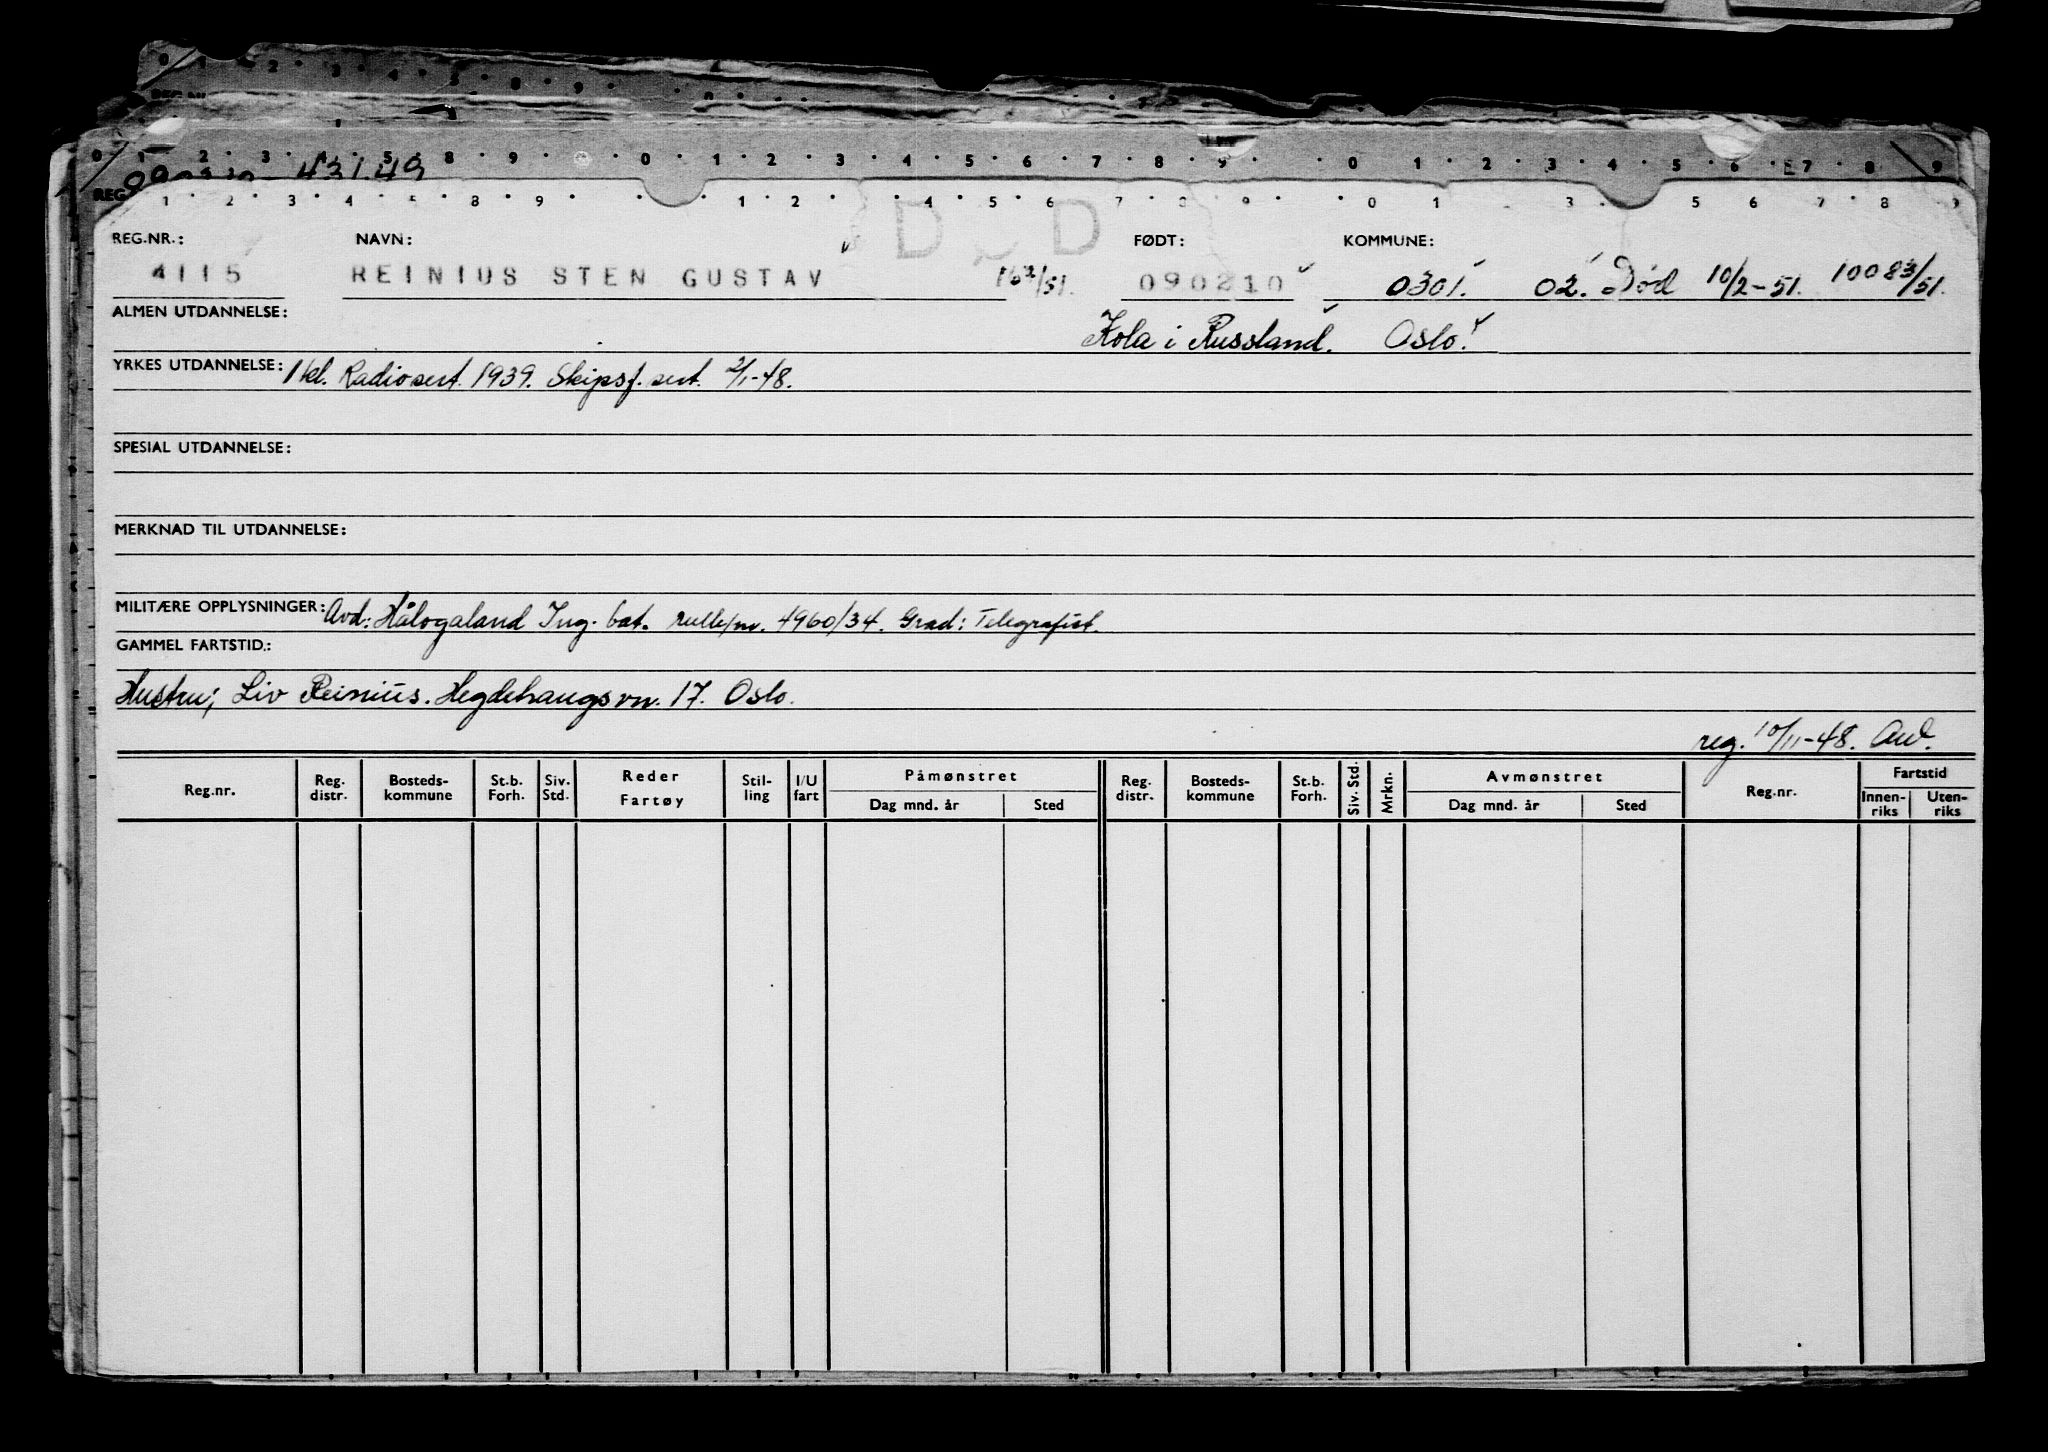 0 1 2 3 4 5 8 9
REG.NR.
0 1 2 3 4 5 8 9 0 1 2 3 4 5 6 7 8 9 0 1 2 3 4 5 6 7 8 9
43149
REG.
1 2 3 4 5 8 9 1 2 4 5 6 7 8 9 0 1 3 5 6 7 8 9
DØD
REG.NR.: NAVN: FØDT: KOMMUNE:
4115 REINIUS STEN GUSTAV 16 2/51. 090210 0301. 02. Død 10/2-51. 10083/51.
ALMEN UTDANNELSE: Kola i Russland. Oslo.
YRKES UTDANNELSE: 1 kl. Radiosert. 1939. Skipsf. sert. 2/1-48.
SPESIAL UTDANNELSE:
MERKNAD TIL UTDANNELSE:
MILITÆRE OPPLYSNINGER: Avd: Hålogaland Ing. bat. rulle/nr. 4960/34. Grad: Telegrafist.
GAMMEL FARTSTID.:
Hustru; Liv Reinius. Hegdehaugsvn. 17. Oslo.
reg. 10/11-48. AW.
Reg.nr. Reg. distr. Bosteds-kommune St.b. Forh. Siv. Std. Reder Fartøy Stil-ling I/U fart Påmønstret Dag mnd. år Sted Reg. distr. Bosteds-kommune St.b. Forh. Siv. Std. Mrkn. Avmønstret Dag mnd. år Sted Reg.nr. Fartstid Innen-riks Uten-riks